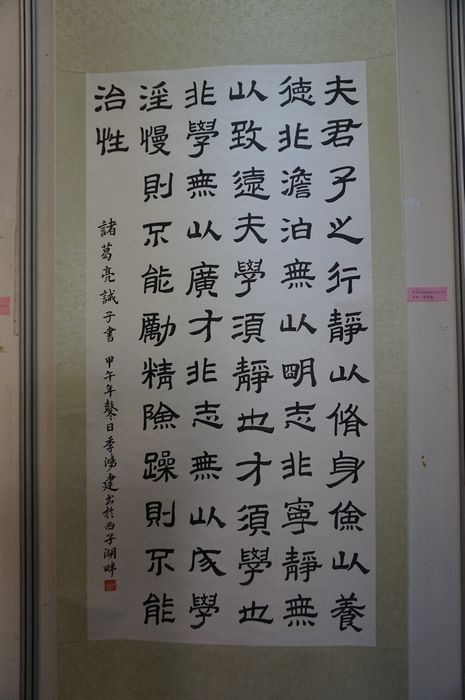 夫君子之行靜以脩身儉以養
徳非澹泊無以眀志非寧靜無
以致遠夫學須靜也才須學也
非學無以廣才非志無以成學
淫慢則不能勵精險躁則不能
治性
諸葛亮誡子書 甲午年鼕日季鴻建書於西子湖畔